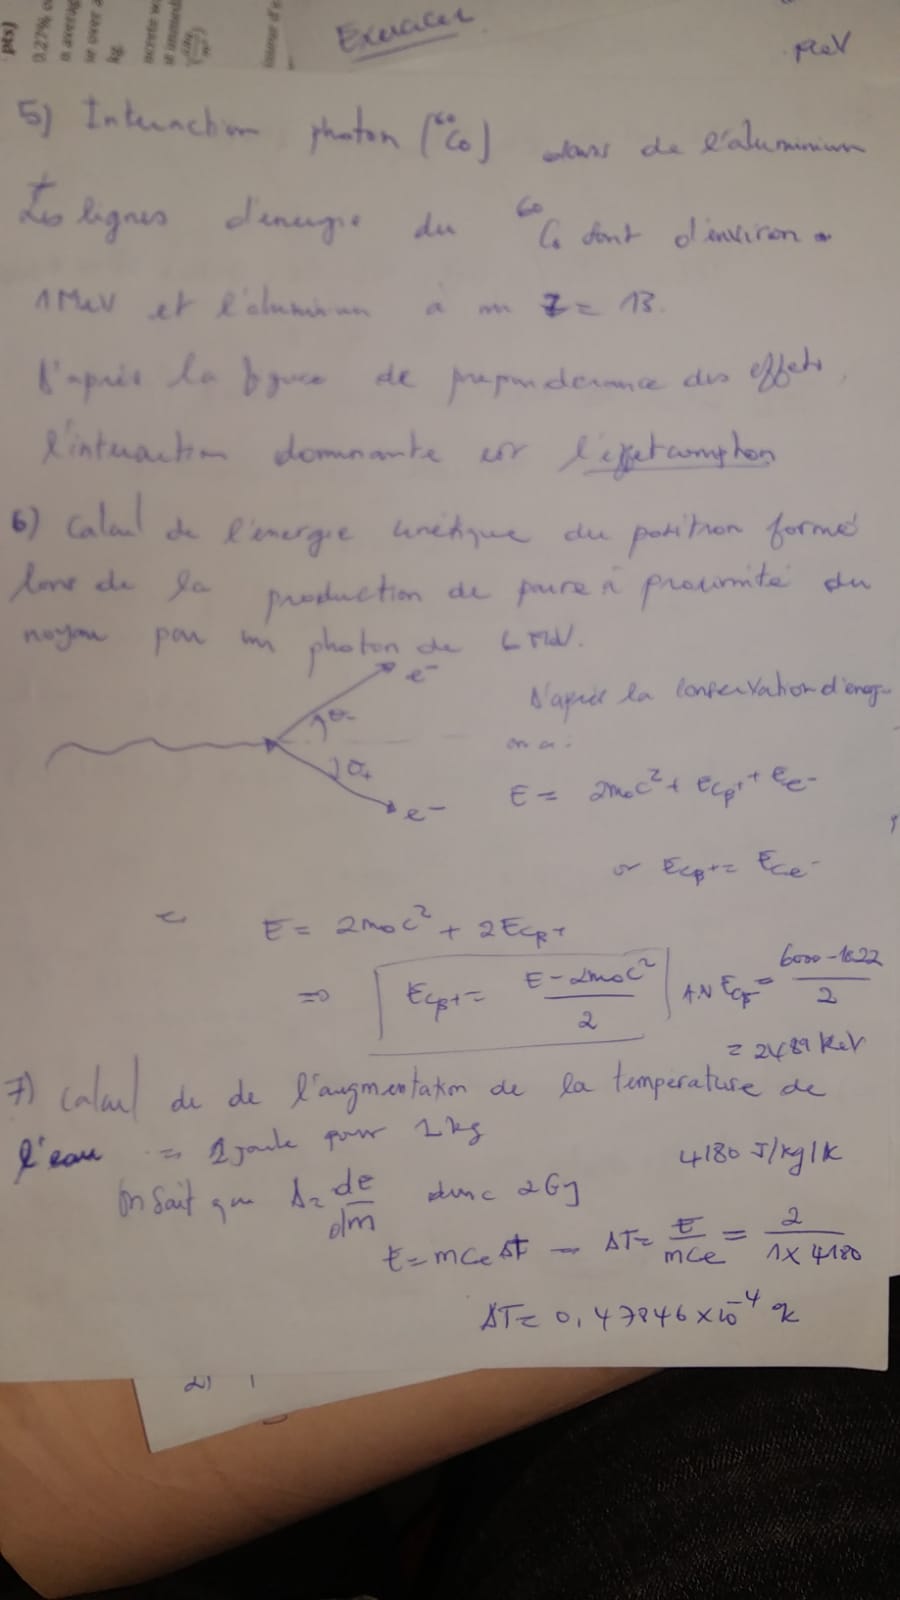 pts)
0.27% o
n averag
se over a
kg.
ncrete w
Exercices
MeV
5) Interaction photon (⁶⁰Co) dans de l'aluminium
Les lignes d'énergie du ⁶⁰Co sont d'environ
1 MeV et l'aluminium à un Z = 13.
D'après la figure de preponderance des effets,
l'interaction dominante est l'effet compton
6) Calcul de l'énergie cinétique du positron formé
lors de la production de paire à proximité du
noyau par un photon de 6 MeV.
e⁻
D'après la conservation d'énerg
θ₋
on a :
θ₊
E = 2m₀c² + Ecβ⁺ + Ece⁻
e⁻
or Ecβ⁺ = Ece⁻
E = 2m₀c² + 2Ecβ⁺
=> Ecβ⁺ = (E - 2m₀c²)/2 A.N Ecβ⁺ = (6000 - 1022)/2
= 2489 KeV
7) Calcul de de l'augmentation de la température de
l'eau = 1 joule pour 1 kg
4180 J/kg/K
On sait que D = de/dm donc 2Gy
E = mCeΔT → ΔT = E/mCe = 2/(1 x 4180)
ΔT = 0,47846 x 10⁻⁴ K
2)